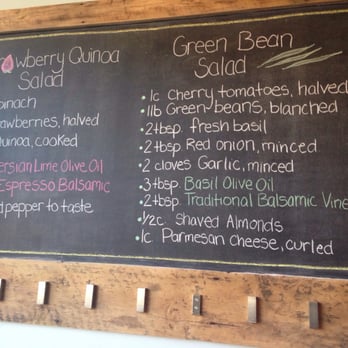 wberry Quinoa
Salad
pinach
rawberries, halved
uinoa, cooked
ersian Lime Olive Oil
Espresso Balsamic
d pepper to taste
Green Bean
Salad
• 1c Cherry tomatoes, halved
• 1lb Green beans, blanched
• 2 tbsp fresh basil
• 2 tbsp Red onion, minced
• 2 cloves Garlic, minced
• 3 tbsp Basil Olive Oil
• 2 tbsp Traditional Balsamic Vine
• 1/2c Shaved Almonds
• 1c Parmesan cheese, curled